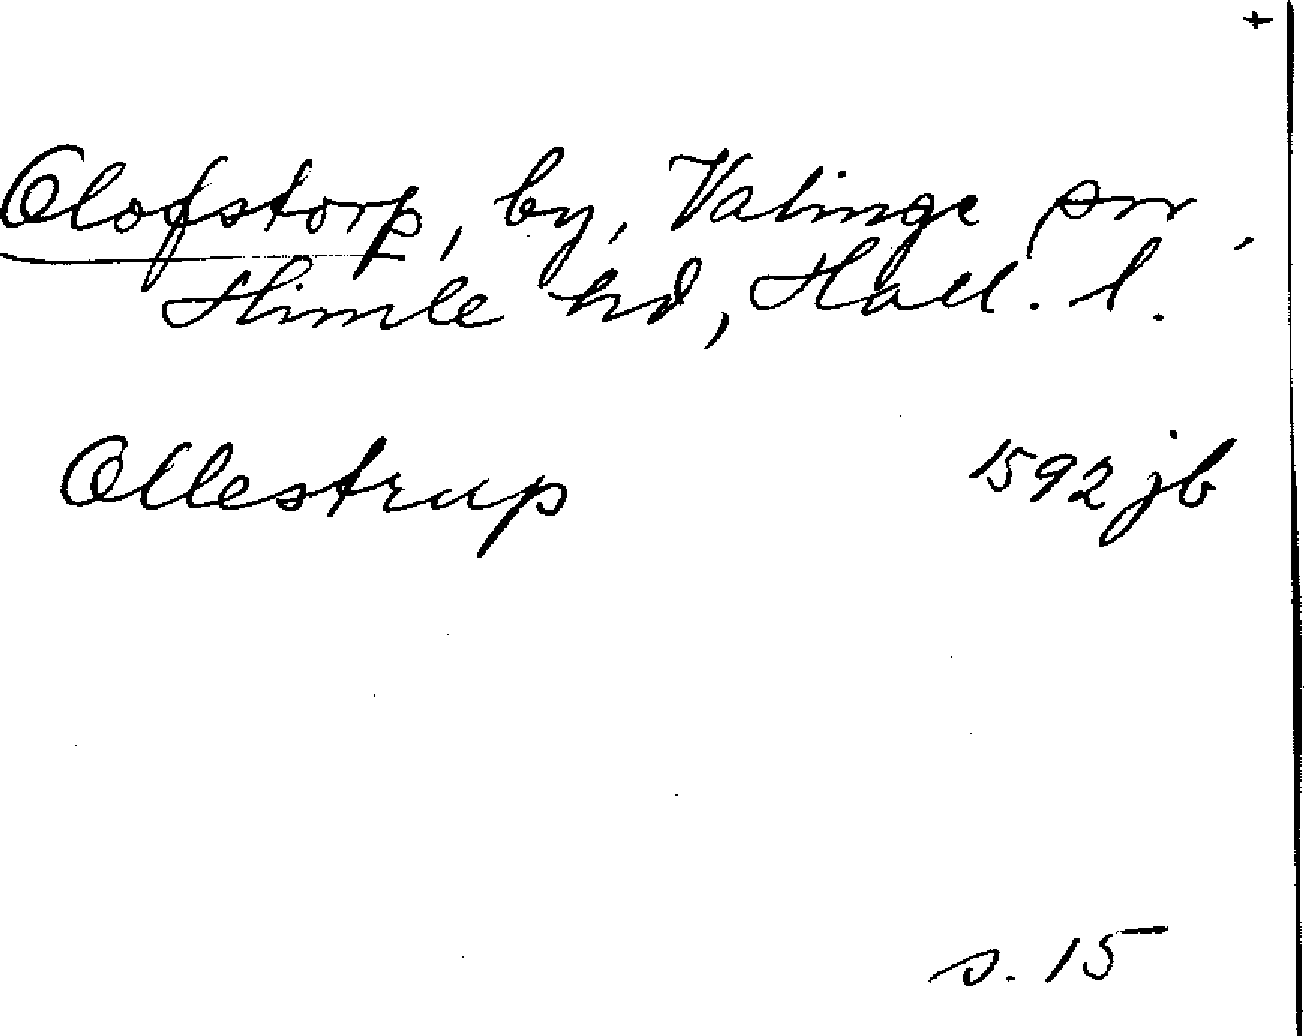 +
Olofstorp, by, Valinge sn,
Himle hd, Hall. l.
Ollestrup 1592 jb
s. 15